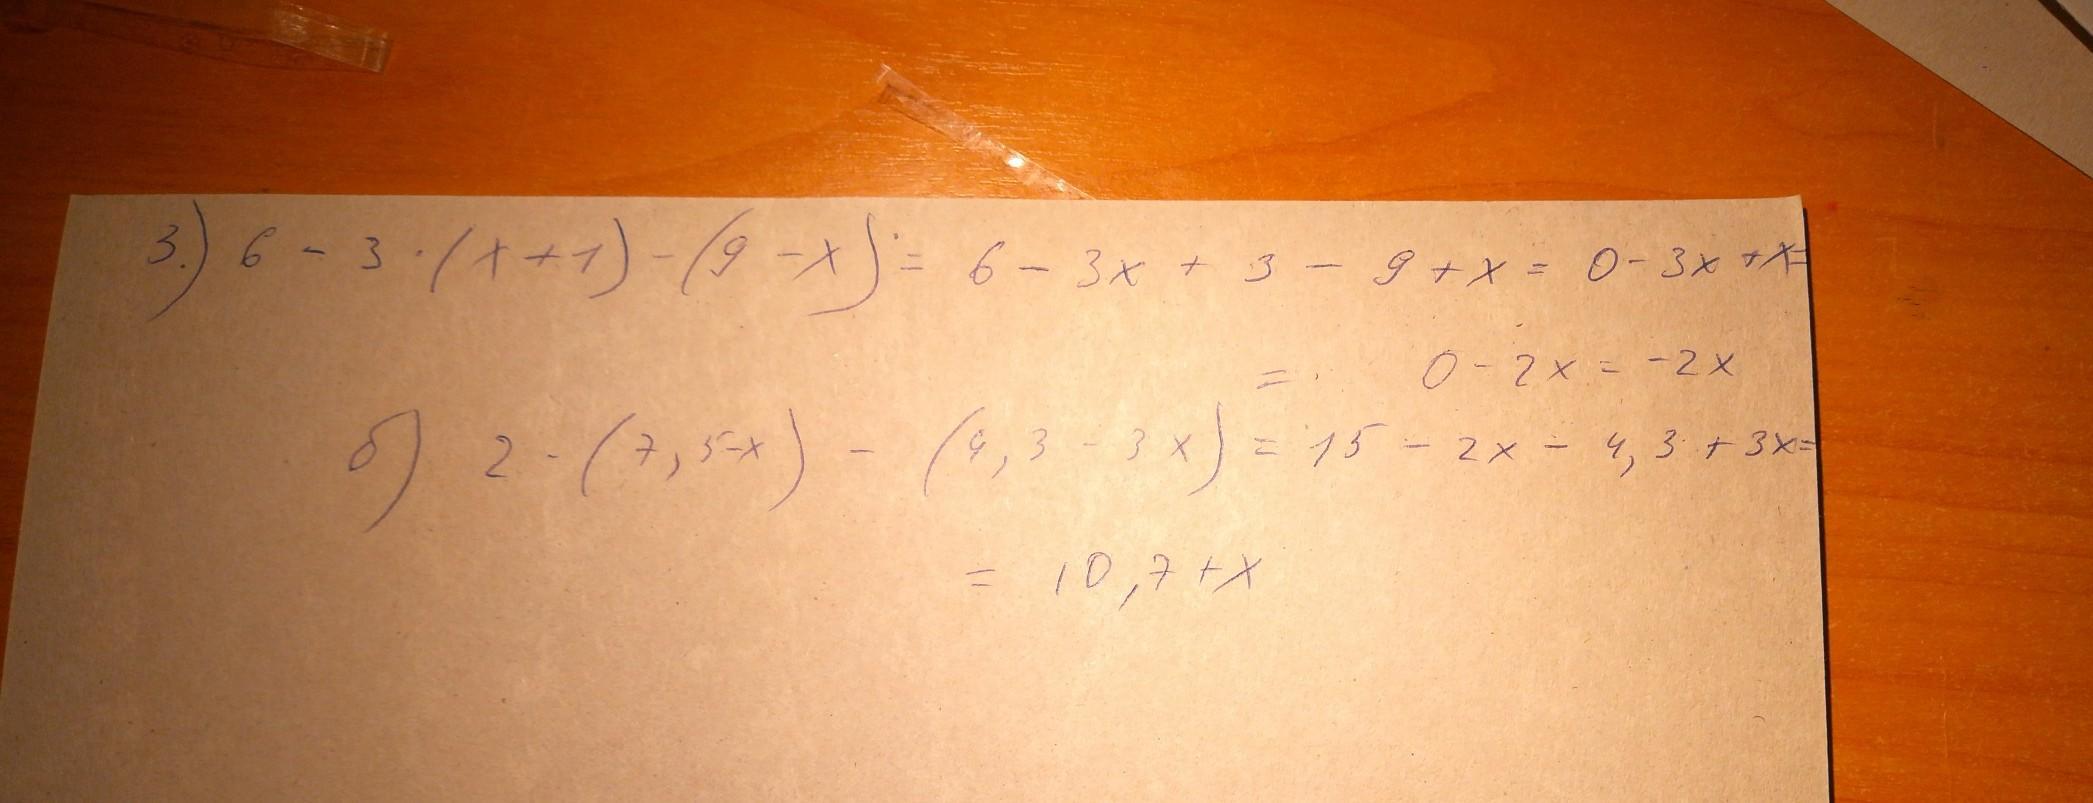 3.) 6 - 3 · (x + 1) - (9 - x) = 6 - 3x + 3 - 9 + x = 0 - 3x + x =
= 0 - 2x = -2x
б) 2 · (7,5-x) - (4,3 - 3x) = 15 - 2x - 4,3 + 3x =
= 10,7 + x